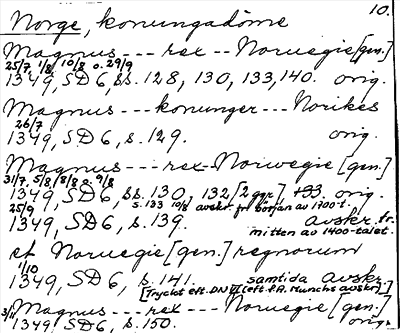 10.
Norge, konungadöme
Magnus --- rex -- Noruegie [gen.]
25/7 1/8, 10/8 o. 29/9
1349, SD 6, ss. 128, 130, 133, 140. orig.
Magnus --- konunger --- Norikes
26/7
1349, SD 6, s. 129. orig.
Magnus --- rex -- Norwegie [gen.]
31/7, 5/8, 8/8 o. 9/8
1349, SD 6, ss. 130, 132 [2 ggr] 133. orig.
s. 133 10/8 avskr. fr. början av 1700-t.
25/9
1349, SD 6, s. 139. Avskr. fr.
mitten av 1400-talet.
et Noruegie [gen.] regnorum
1/10
1349, SD 6, s. 141. samtida avskr.
[Tryckt eft. DN (eft P.A. Munchs avskr.]
Magnus --- rex --- Noruegie [gen.]
3/11
1349, SD 6, s. 150. orig.